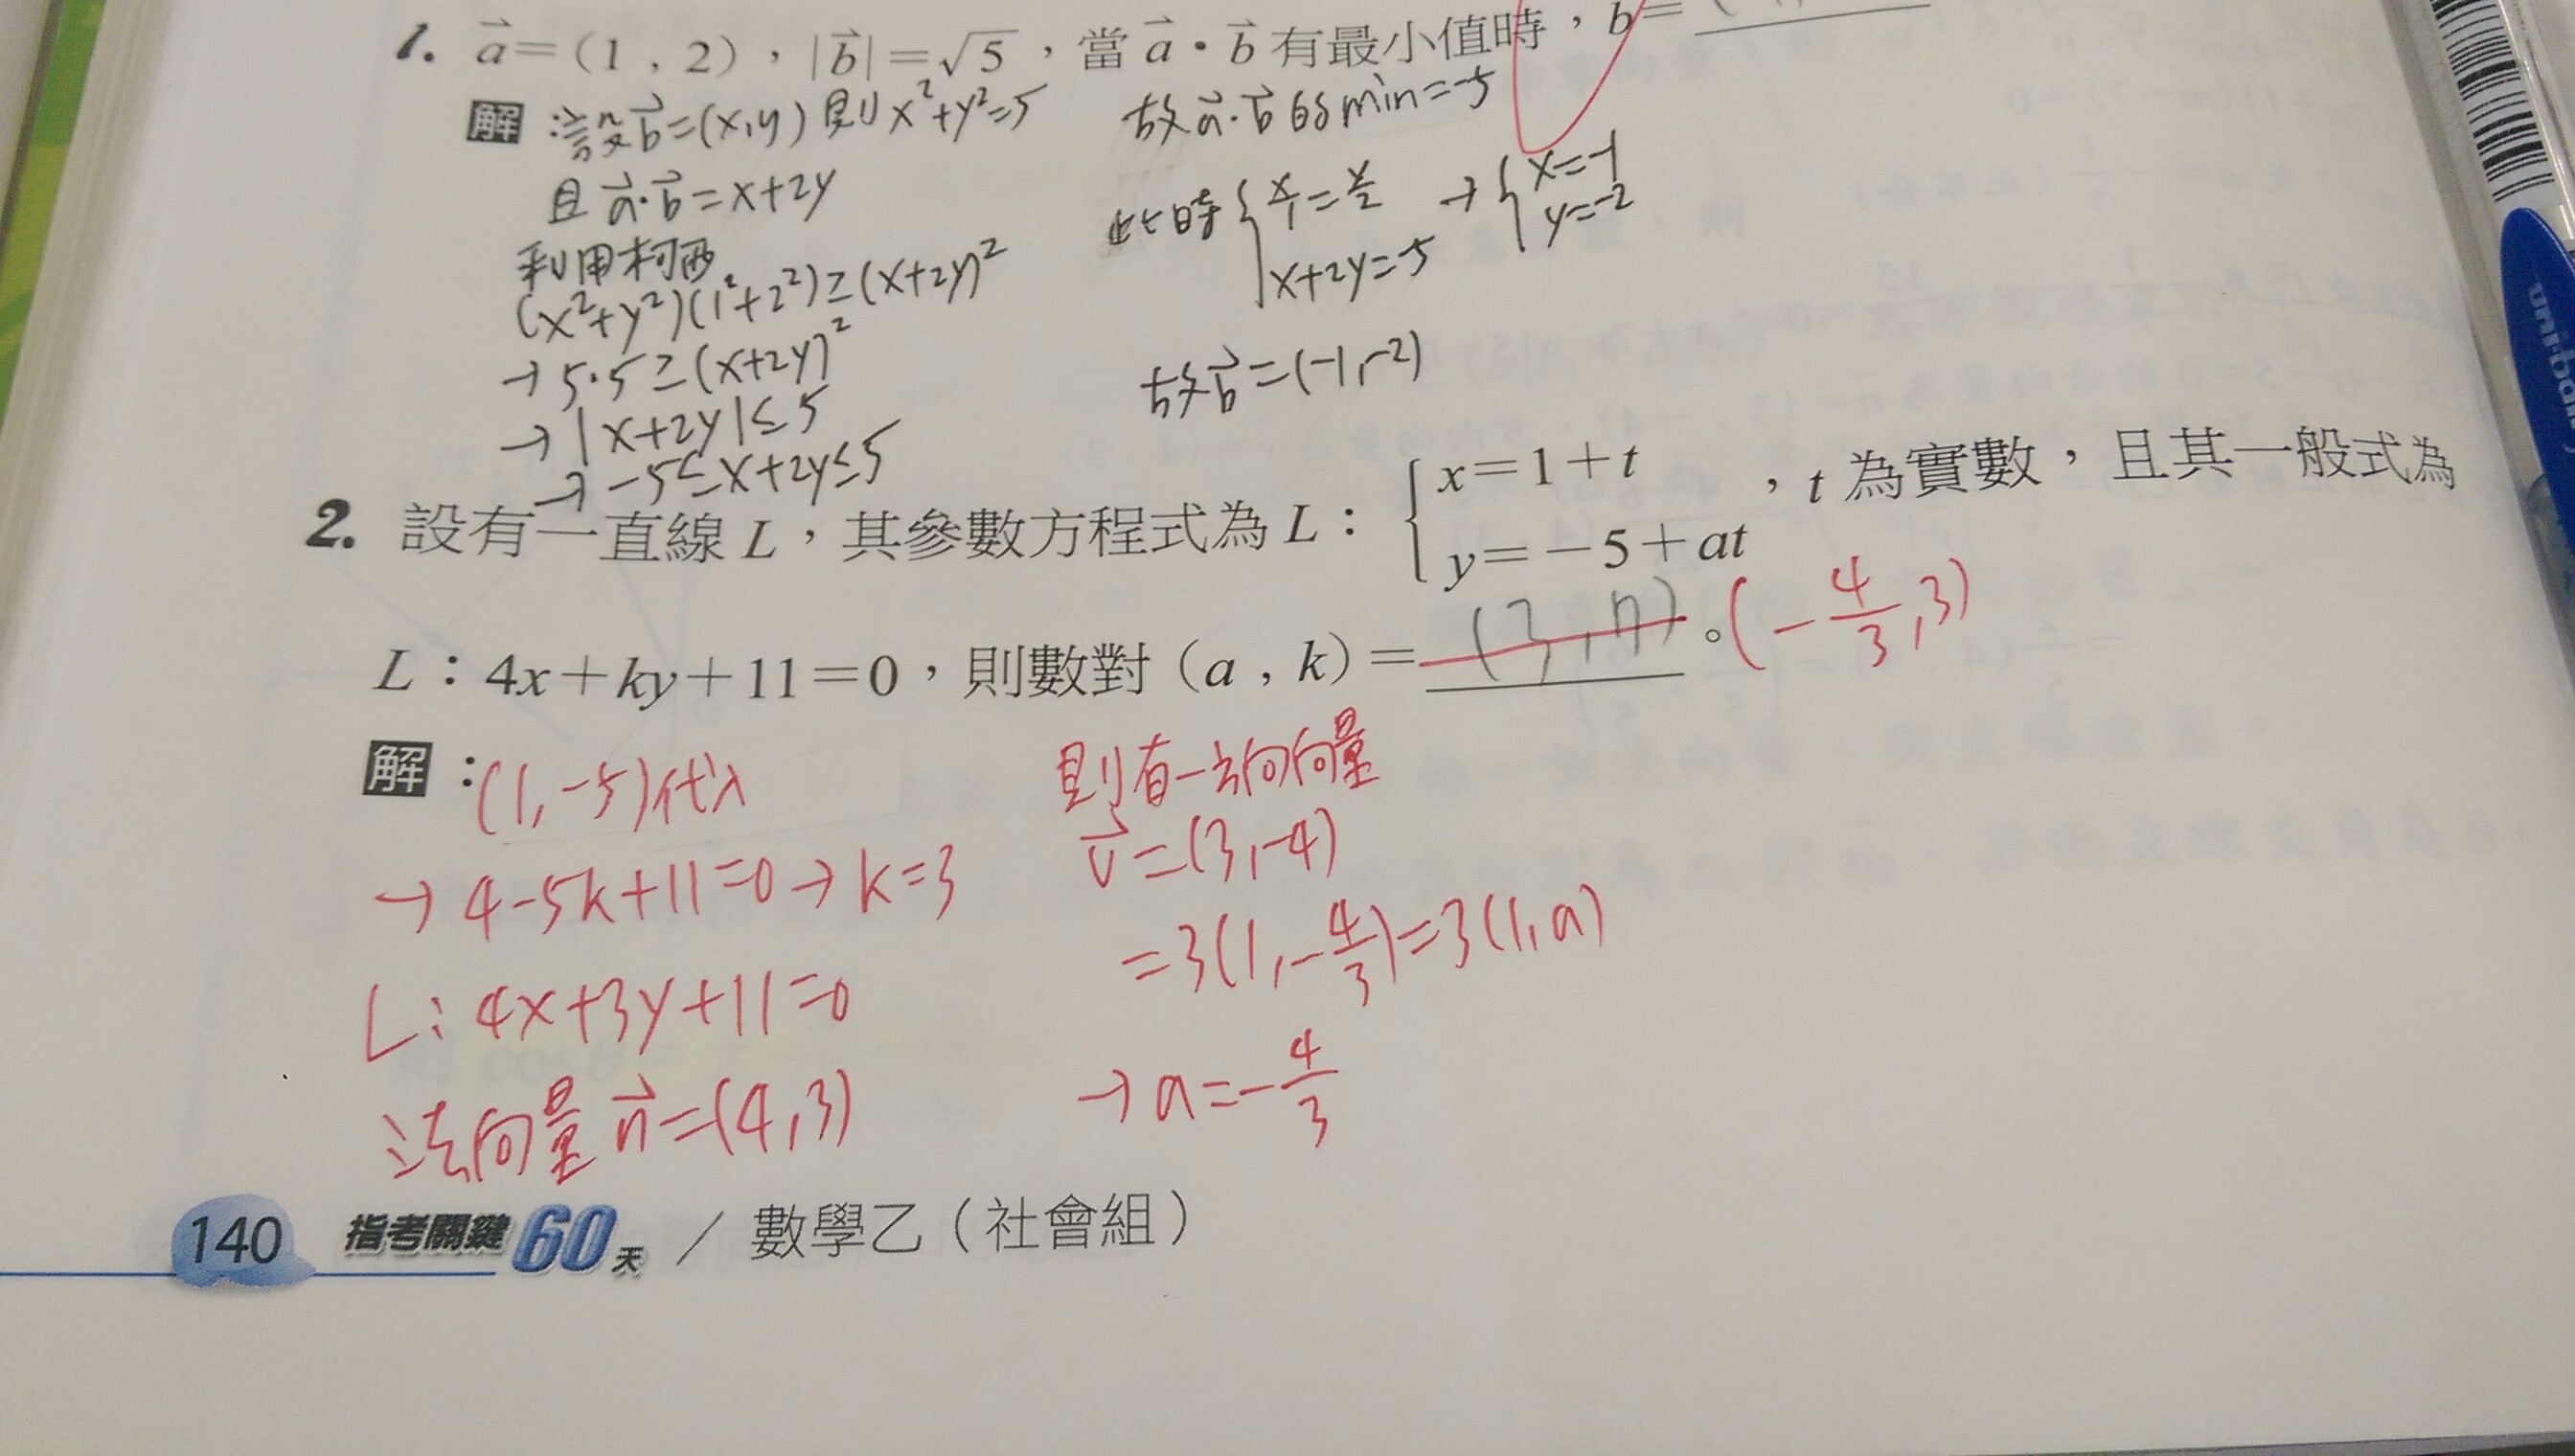 1. a⃗=(1,2),|b⃗|=√5,當 a⃗・b⃗ 有最小值時,b⃗=
解:設b⃗=(x,y) 則 x²+y²=5
且 a⃗・b⃗=x+2y
利用柯西
(x²+y²)(1²+2²)≥(x+2y)²
→ 5・5≥(x+2y)²
→ |x+2y|≤5
→ -5≤x+2y≤5
故a⃗・b⃗的min=-5
此時{x/1=y/2 → {x=-1
y=-2
x+2y=-5
故b⃗=(-1,-2)
2. 設有一直線 L,其參數方程式為 L:{x=1+t
y=-5+at ,t 為實數,且其一般式為
L:4x+ky+11=0,則數對(a,k)= 。(-4/3,3)
解:(1,-5)代入
→ 4-5k+11=0→k=3
L:4x+3y+11=0
法向量n⃗=(4,3)
則有一方向向量
v⃗=(3,-4)
=3(1,-4/3)=3(1,a)
→a=-4/3
140 指考關鍵60天 / 數學乙(社會組)
uni-ball